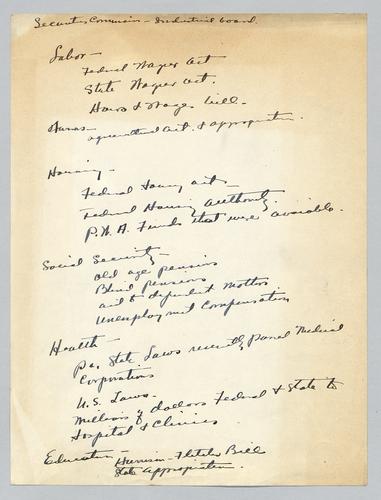 Securities Commission - Industrial board.
Labor -
Federal Wagner act
State Wagner act.
Hours & Wages bill -
agricultural act. & appropriation.
Housing -
Federal Housing act -
Federal Housing Authority.
P.W.A. Funds that were available.
Social Security -
Old age pensions
Blind pensions
aid to dependent mothers
Unemployment Compensation
Health -
Pa. State Laws recently passed Medical
Corporations
U.S. Laws -
Millions of dollars Federal & State to
Hospital & Clinics
Education - Harrison - Fletcher Bill
State Appropriation.